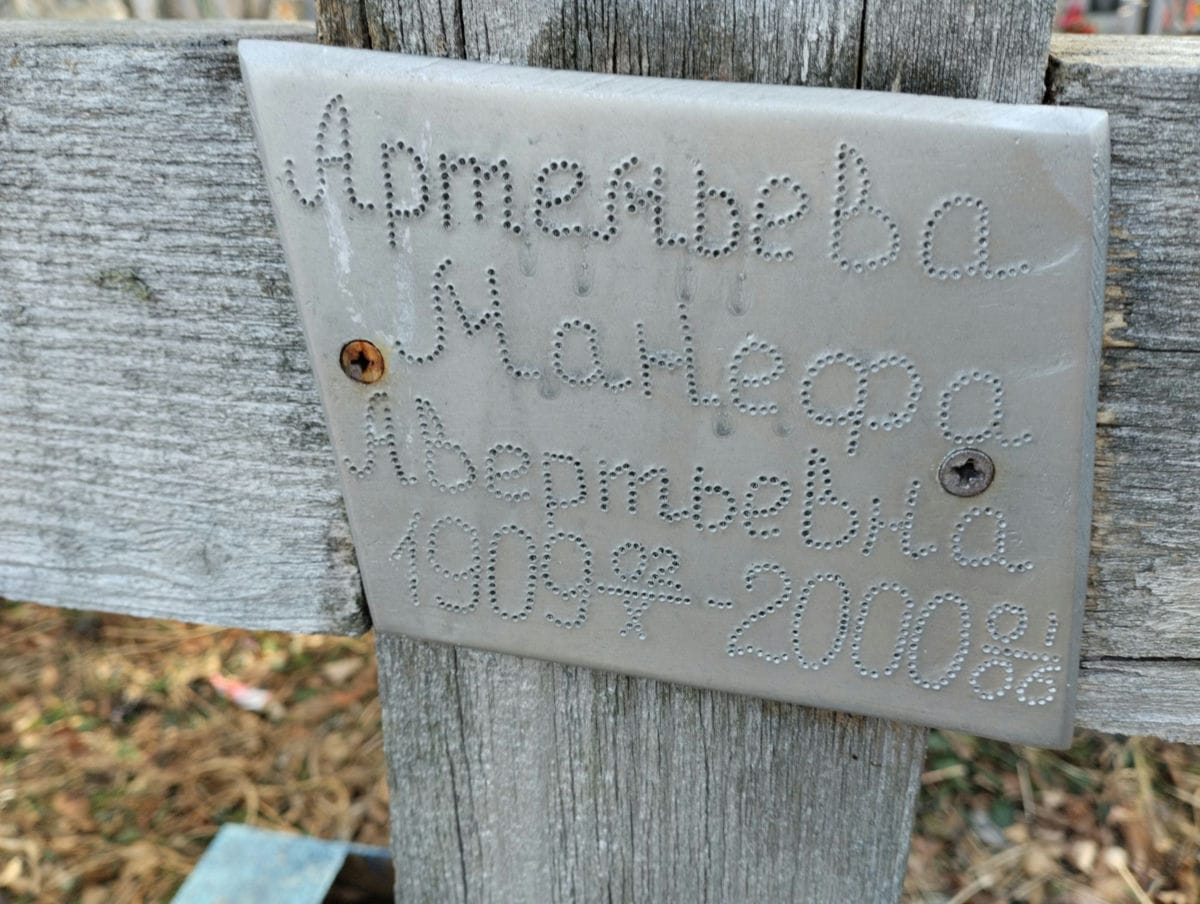 Артемьева
Манефа
Авертьевна
1909 - 2000